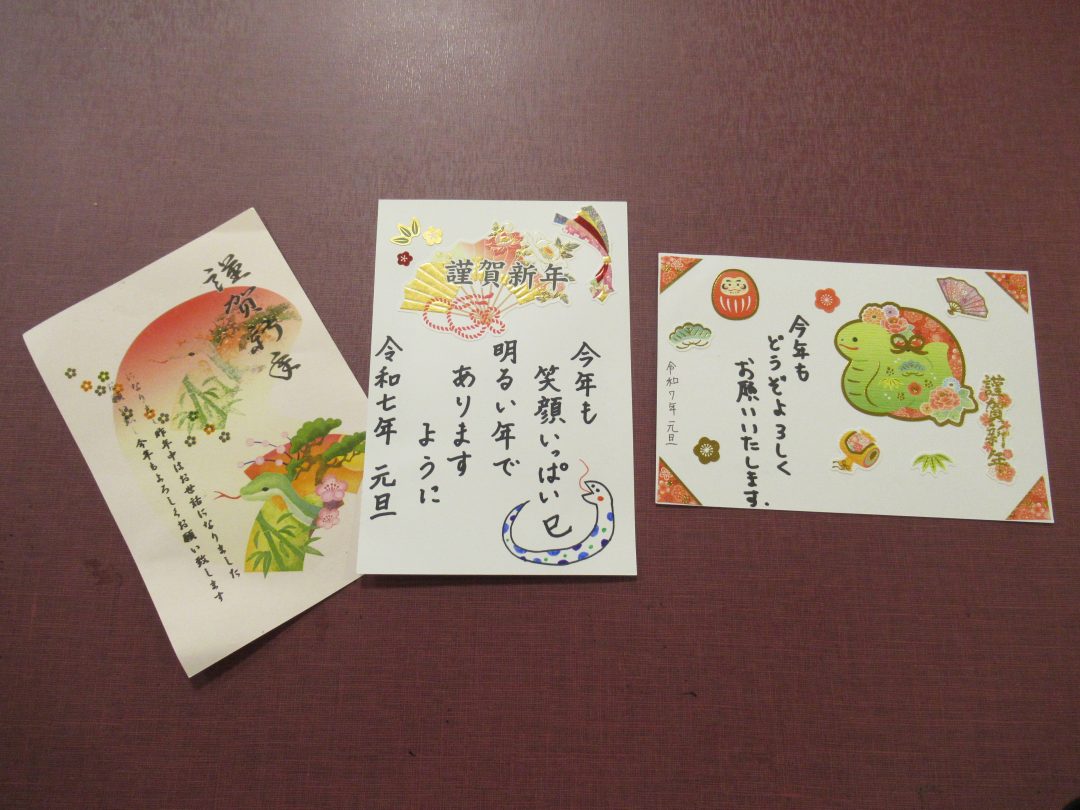 謹賀新年
昨年中はお世話になりました
今年もよろしくお願い致します
謹賀新年
今年も
笑顔いっぱい巳
明るい年で
あります
ように
令和七年 元旦
今年も
どうぞよろしく
お願いいたします.
謹賀新年
令和7年 元旦